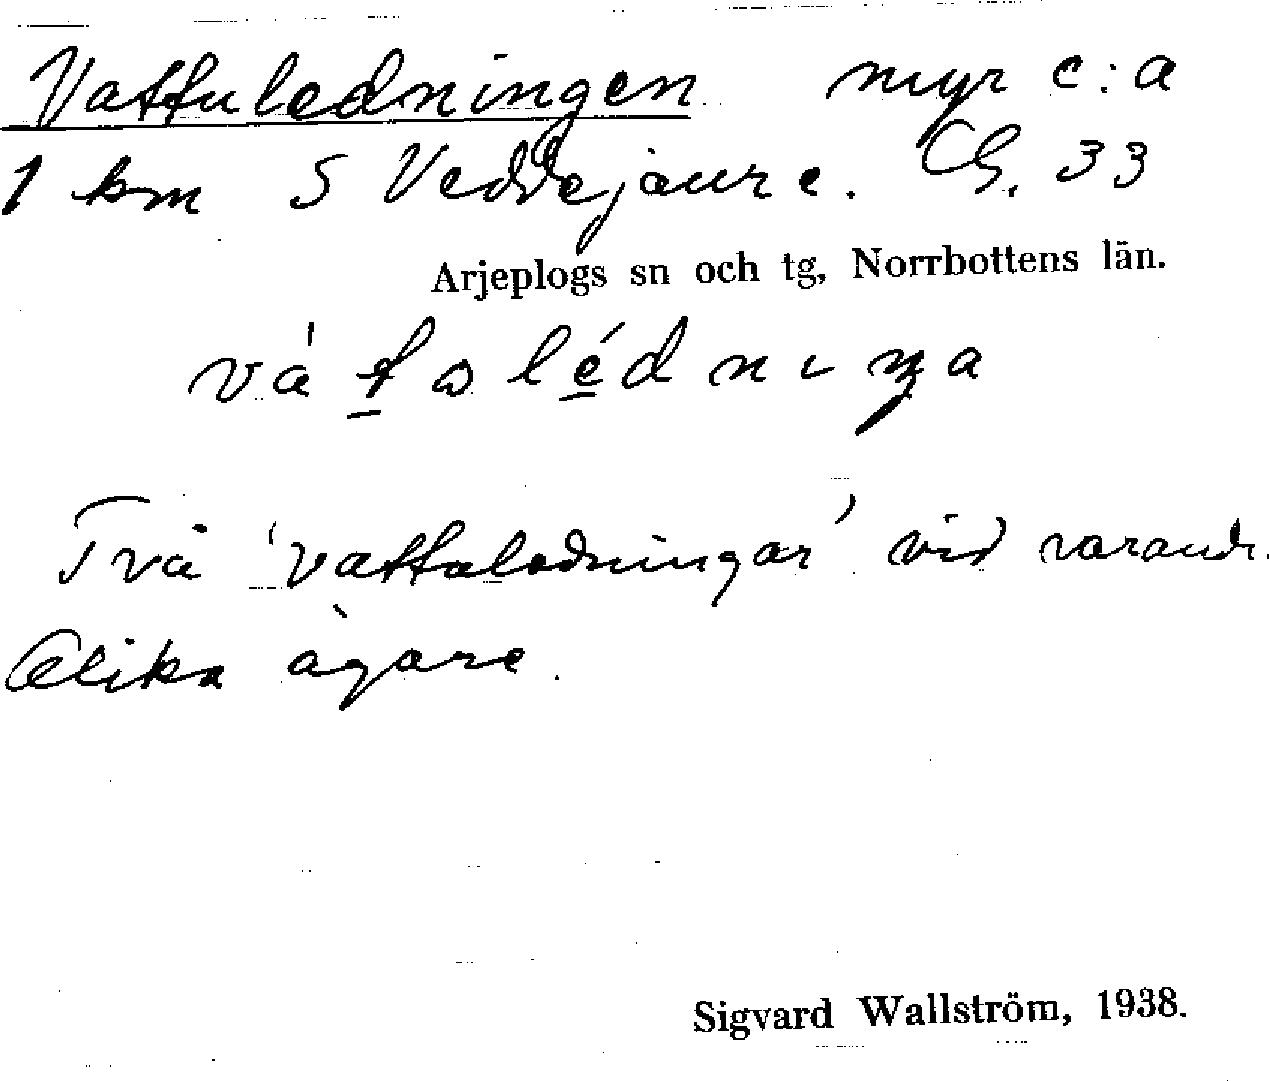 Vattuledningen myr c:a
1 km S Veddejaure. Ch. 33
Arjeplogs sn och tg, Norrbottens län.
Två 'vattuledningar' vid varandr.
Olika ägare.
Sigvard Wallström, 1938.